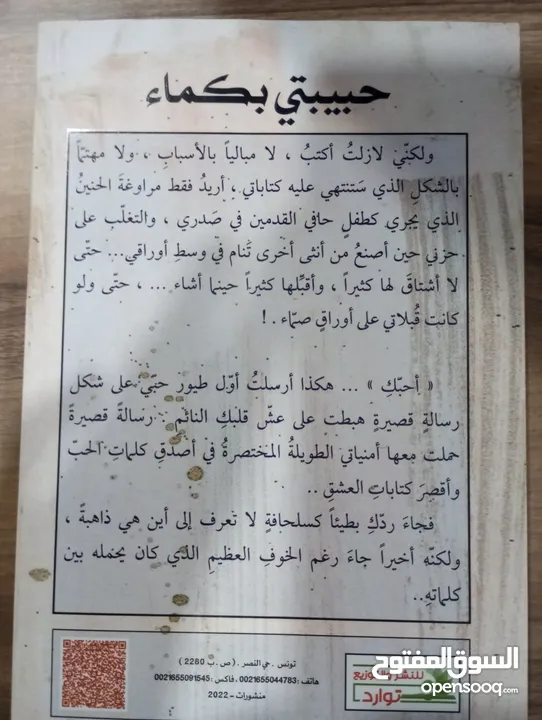 حبيبتي بكماء
ولكنّي لازلتُ أكتبُ ، لا مبالياً بالأسبابِ ، ولا مهتمّاً
بالشكلِ الذي سَتنتهي عليه كتاباتي ، أريدُ فقط مراوغةَ الحنينُ
الذي يَجري كطفلٍ حافي القدمين في صَدري ، والتغلّب على
حزني حين أصنعُ من أنثى أخرى تَنام في وسطِ أوراقي... حتّى
لا أشتاقَ لها كثيراً ، وأقبّلها كثيراً حينما أشاء ... ، حتّى ولو
كانت قُبلاتي على أوراقٍ صمّاء . !
« أحبّكِ » ... هكذا أرسلتُ أوّل طيور حبّي على شكل
رسالةٍ قصيرةٍ هبطت على عشّ قلبكِ النائم . رسالةً قصيرةً
حملت معها أمنياتي الطويلةُ المختصرةُ في أصدقِ كلماتِ الحبّ
وأقصرَ كتاباتِ العشقِ ..
فجاءَ ردّكِ بطيئاً كسلحافة لا تَعرف إلى أين هي ذاهبةً ،
ولكنّه أخيراً جاءَ رغم الخوفِ العظيمِ الذي كان يحمله بين
كلماتهِ..
تونس . حي النصر . ( ص . ب 2280 )
هاتف : 0021655044783 ، فاكس : 0021655091545
منشورات - 2022
للنشر والتوزيع
توارد
السوق المفتوح
opensooq.com